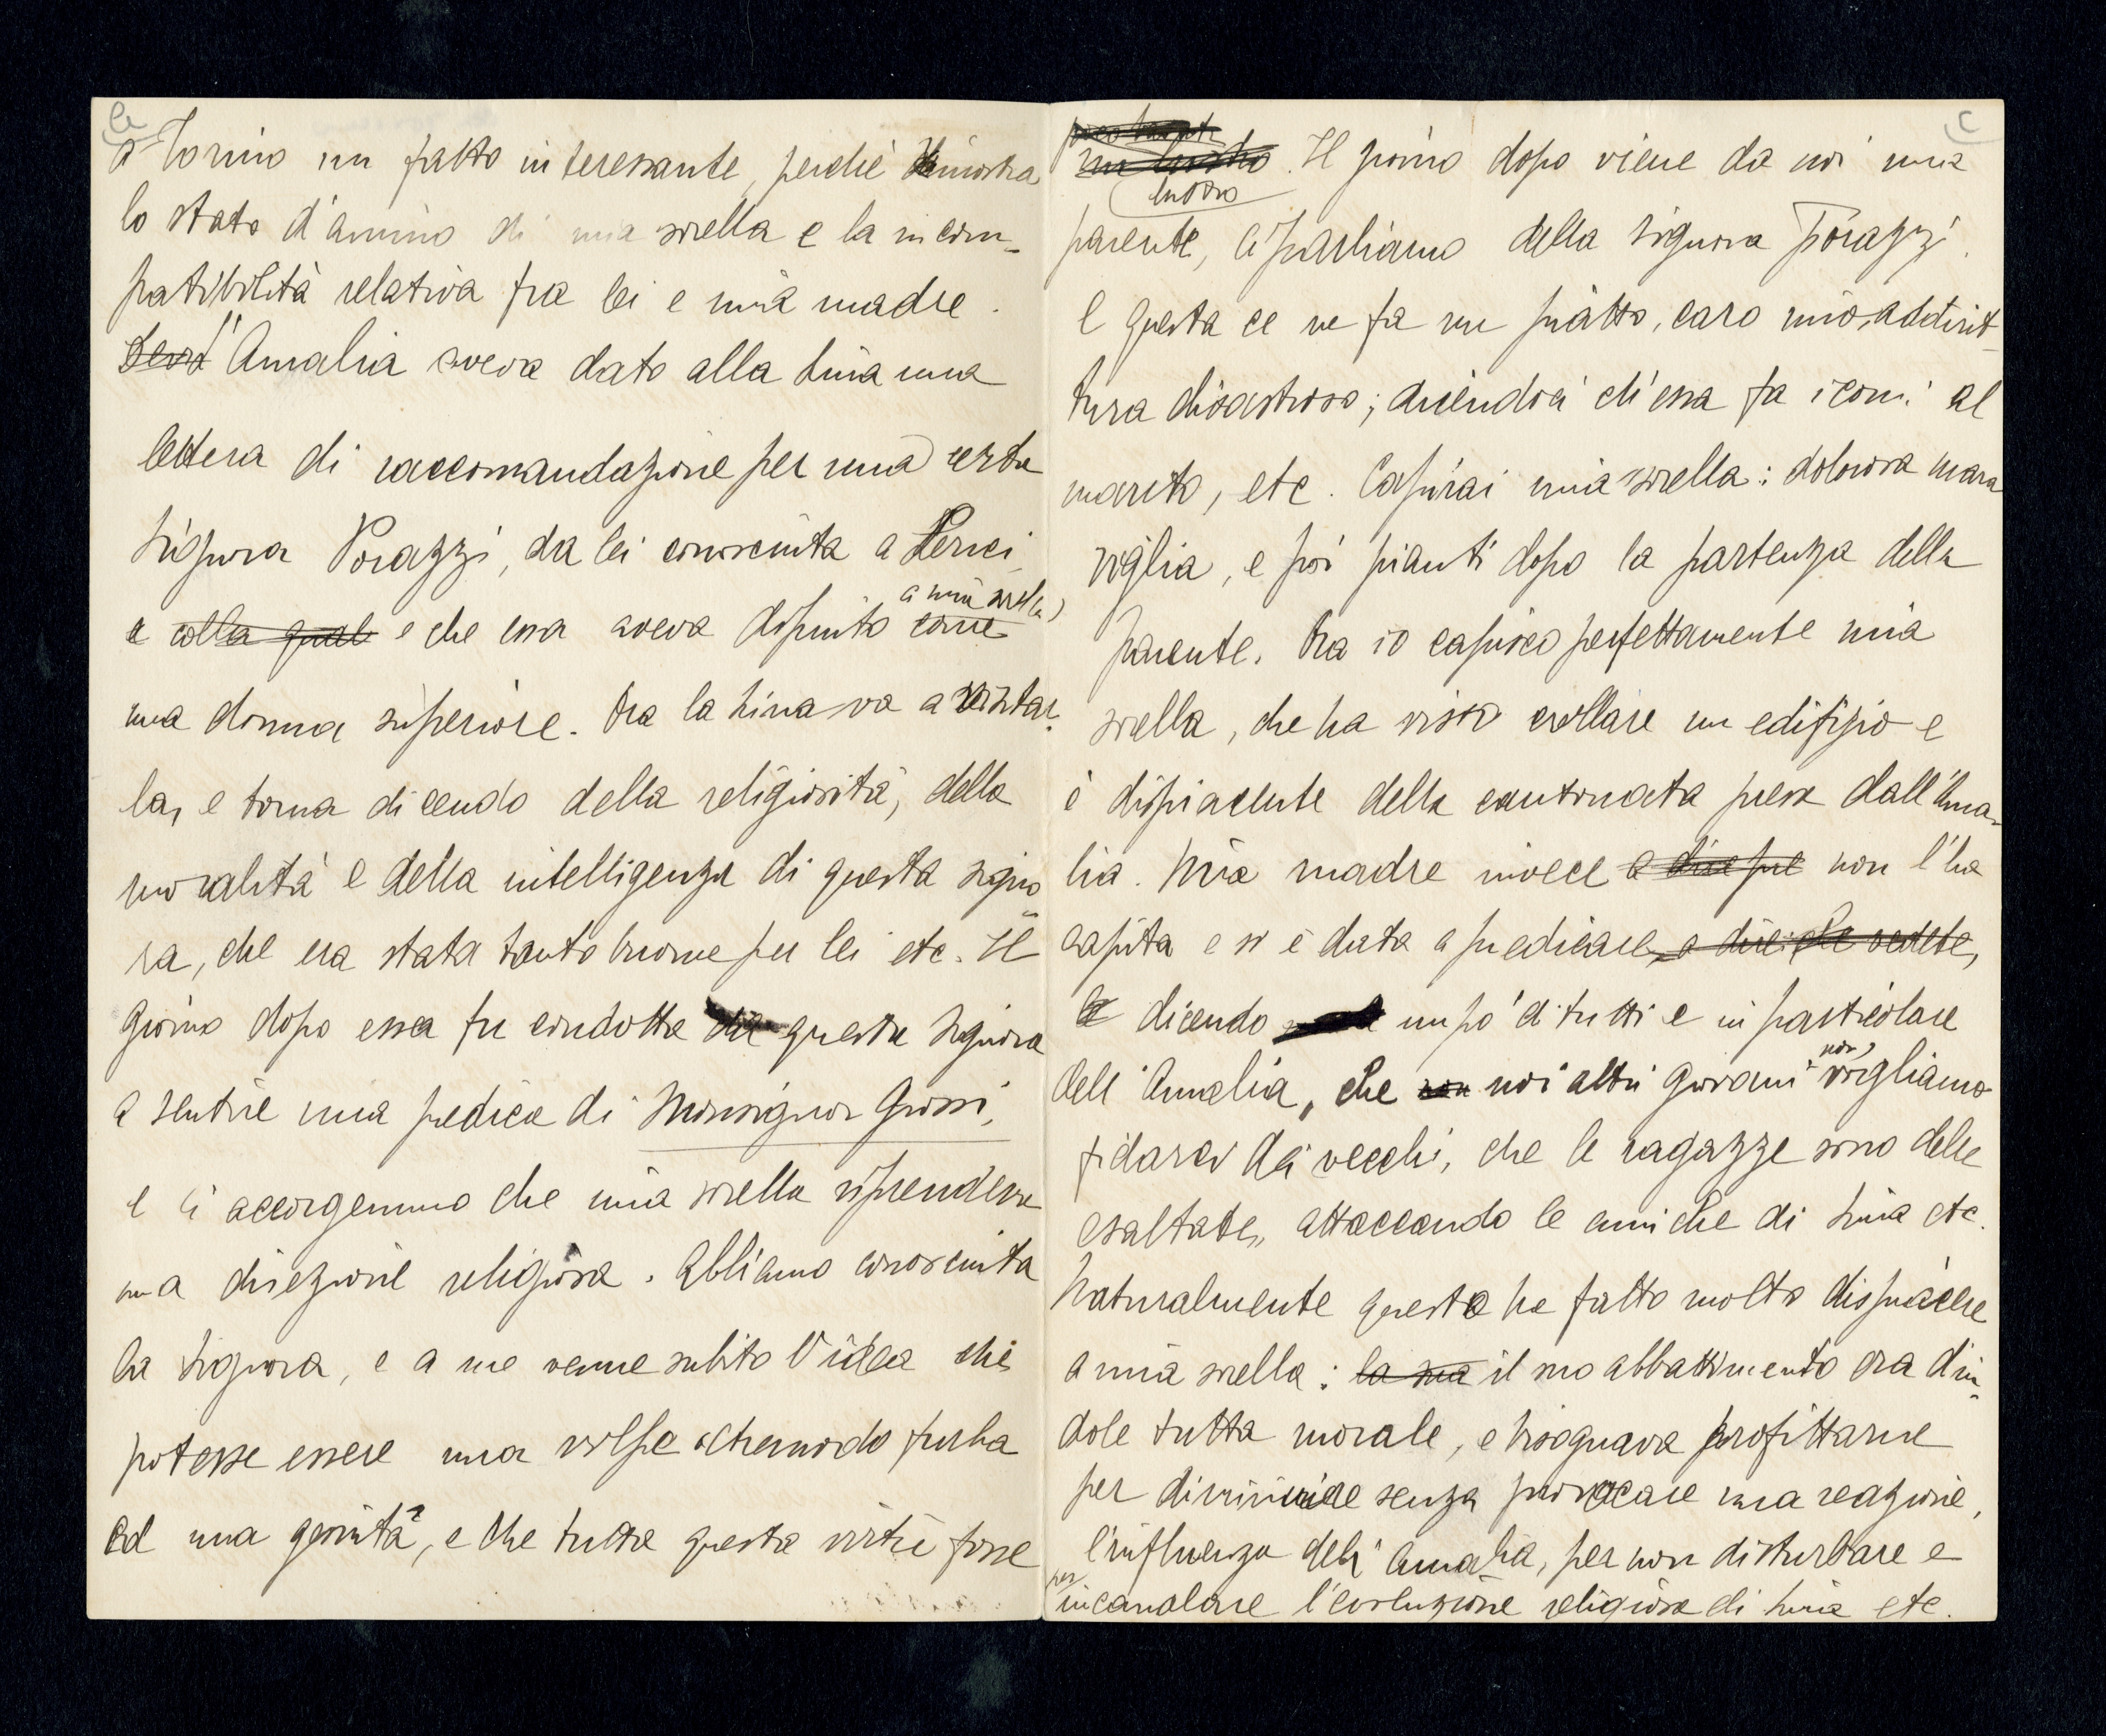 a Torino un fatto interessante, perchè dimostra
lo stato d'animo di mia sorella e la incom-
patibilità relativa fra lei e mia madre.
L'Amalia aveva dato alla Lina una
lettera di raccomandazione per una certa
Signora Porazzi, da lei conosciuta a Lerici
e colla quale e che essa aveva dipinto a mia sorella come
una donna superiore. Ora la Lina va a visitar-
la, e torna dicendo della religiosità, della
moralità e della intelligenza di questa signo-
ra, che era stata tanto buona per lei etc. Il
giorno dopo essa fu condotta da questa signora
a sentire una predica di Monsignor Grossi,
e ci accorgemmo che mia sorella riprendeva
una direzione religiosa. Abbiamo conosciuta
la signora, e a me venne subito l'idea che
potesse essere una volpe oltremodo furba
ed una gesuita, e che tutta questa virtù fosse
c
un lustro
lustro. Il giorno dopo viene da noi una
parente, le parliamo della signora Porazzi.
E questa ce ne fa un piatto, caro mio, addirit-
tura disastroso; dicendoci ch'essa fa i corni al
marito, etc. Capirai mia sorella: dolorosa mara
viglia, e poi pianti dopo la partenza della
parente. Ora io capisco perfettamente mia
sorella, che ha visto crollare un edifizio e
è dispiacente della cantonata presa dall'Ama-
lia. Mia madre invece non l'ha
capita e si è data a predicare, a dire: che vedete,
dicendo un po' di tutti e in particolare
dell'Amalia, che non noi altri giovani non vogliamo
fidarci dei vecchi, che le ragazze sono delle
esaltate, attaccando le amiche di Lina etc.
Naturalmente questo ha fatto molto dispiacere
a mia sorella: la sua il suo abbattimento era d'in-
dole tutta morale, e bisognava profittarne
per diminuire senza provocare una reazione,
l'influenza dell'Amalia, per non disturbare e
per incanalare l'evoluzione religiosa di Lina etc.